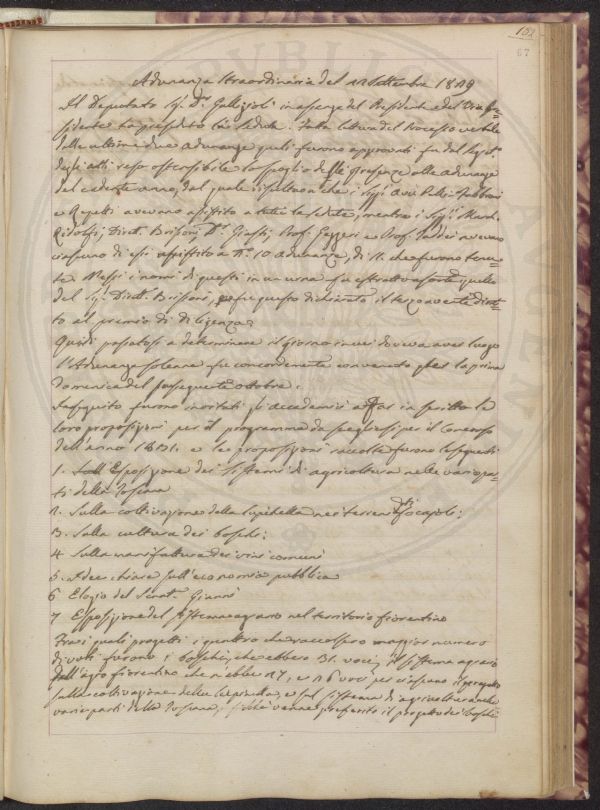 102
67
Adunanza straordinaria del 12 Settembre 1819
Il Deputato Sig. D. Gallizioli in assenza del Presidente e del Vice-Pre-
sidente ha preseduto la seduta. Fatta lettura del Processo verbale
delle ultime due adunanze quali furono approvati fu dal Segret.
degli atti reso ostensibile lo spoglio delle presenze alle adunanze
del cadente anno, dal quale risultava che i Sigg.
e avevano assistito a tutte le sedute, mentre i Sigg. March.
Ridolfi, Dirett. Brisoni, D. Giusti, Prof. Gazzeri e Prof. Taddei avevano
ciascuno di essi assistito a N. 10 adunanze, di 11. che furono tenu-
te. Messi i nomi di questi in un urna fu estratto a sorte quello
del Sig. Dirett. Brisoni, e fu questo dichiarato il terzo avente dirit-
to al premio di diligenza.
Quindi passatosi a determinare il giorno in cui doveva aver luogo
l'Adunanza solenne fu concordemente convenuto per la prima
Domenica del susseguente ottobre.
In seguito furono invitati gli accademici a dar in scritto le
loro proposizioni per il programma da scegliersi per il Concorso
dell'anno 1821. e le proposizioni raccolte furono le seguenti
1. Esposizione dei sistemi di agricoltura nelle varie par-
ti della Toscana
2. Sulla coltivazione della Lupinella nei terreni
3. Sulla cultura dei boschi:
4 Sulla manifattura dei vini comuni
5. Idee chiare sull'economia pubblica
6 Elogio del Senat. Gianni
7 Esposizione del sistema agrario nel territorio fiorentino
Fra i quali progetti i quattro che raccolsero maggior numero
di voti furono i boschi, che ebbero 31. voci, il sistema agrario
dell'agro fiorentino che n'ebbe 27, e 26 voci per ciascuno il progetto
sulla coltivazione della Lupinella, e sul sistema di agricoltura nelle
varie parti della Toscana, sicchè venne preferito il progetto dei boschi